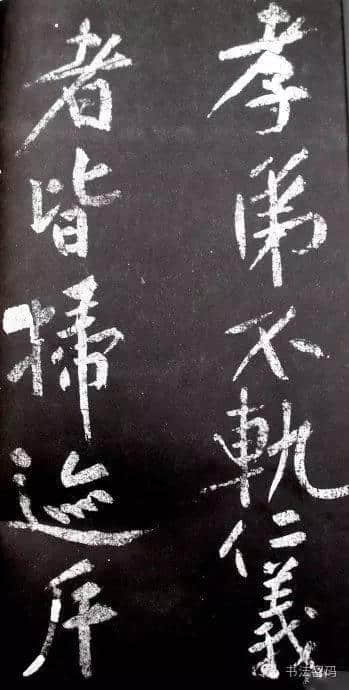 孝弟不軌仁義
者皆掃迹斥
书法密码